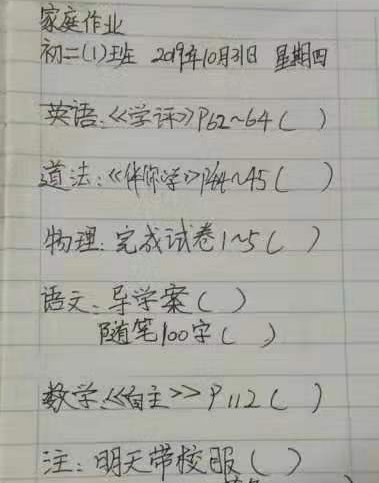 家庭作业
初二(1)班 2019年10月31日 星期四
英语:《学评》P62~64( )
道法:《伴你学》P44~45( )
物理:完成试卷1~5( )
语文:导学案( )
随笔100字( )
数学:《自主》P112( )
注:明天带校服( )